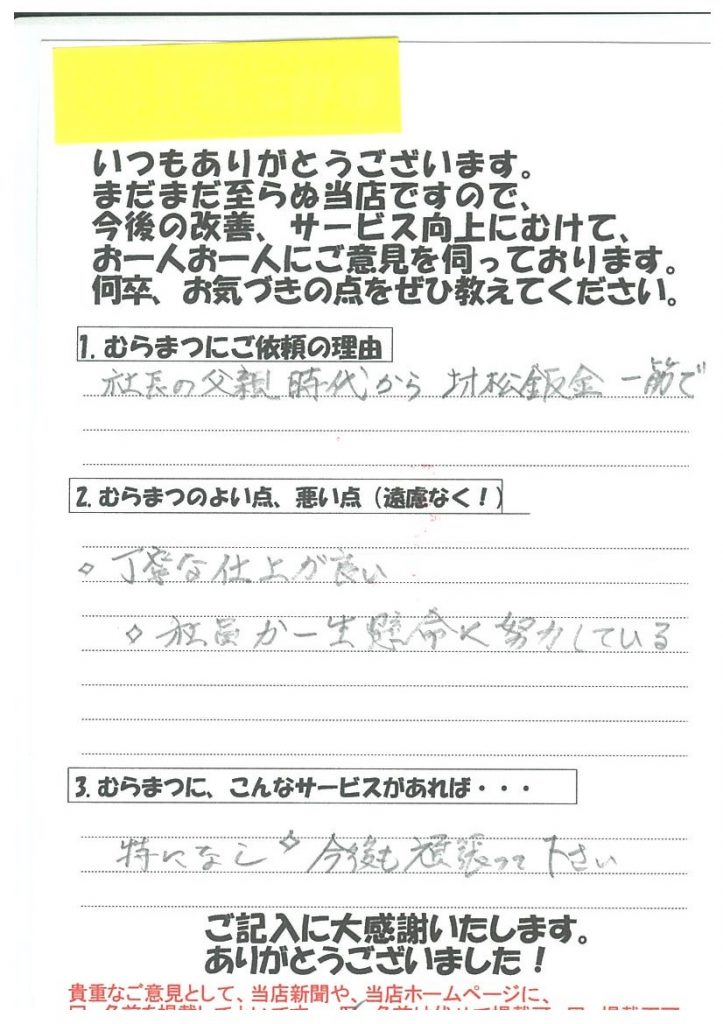 いつもありがとうございます。
まだまだ至らぬ当店ですので、
今後の改善、サービス向上にむけて、
お一人お一人にご意見を伺っております。
何卒、お気づきの点をぜひ教えてください。
1. むらまつにご依頼の理由
社長の父親 時代から 村松鈑金 一筋で
2. むらまつのよい点、悪い点（遠慮なく！）
◇ 丁寧な仕上が良い
◇ 社員が一生懸命に努力している
3. むらまつに、こんなサービスがあれば・・・
特になし ◇ 今後も頑張って下さい
ご記入に大感謝いたします。
ありがとうございました！
貴重なご意見として、当店新聞や、当店ホームページに、